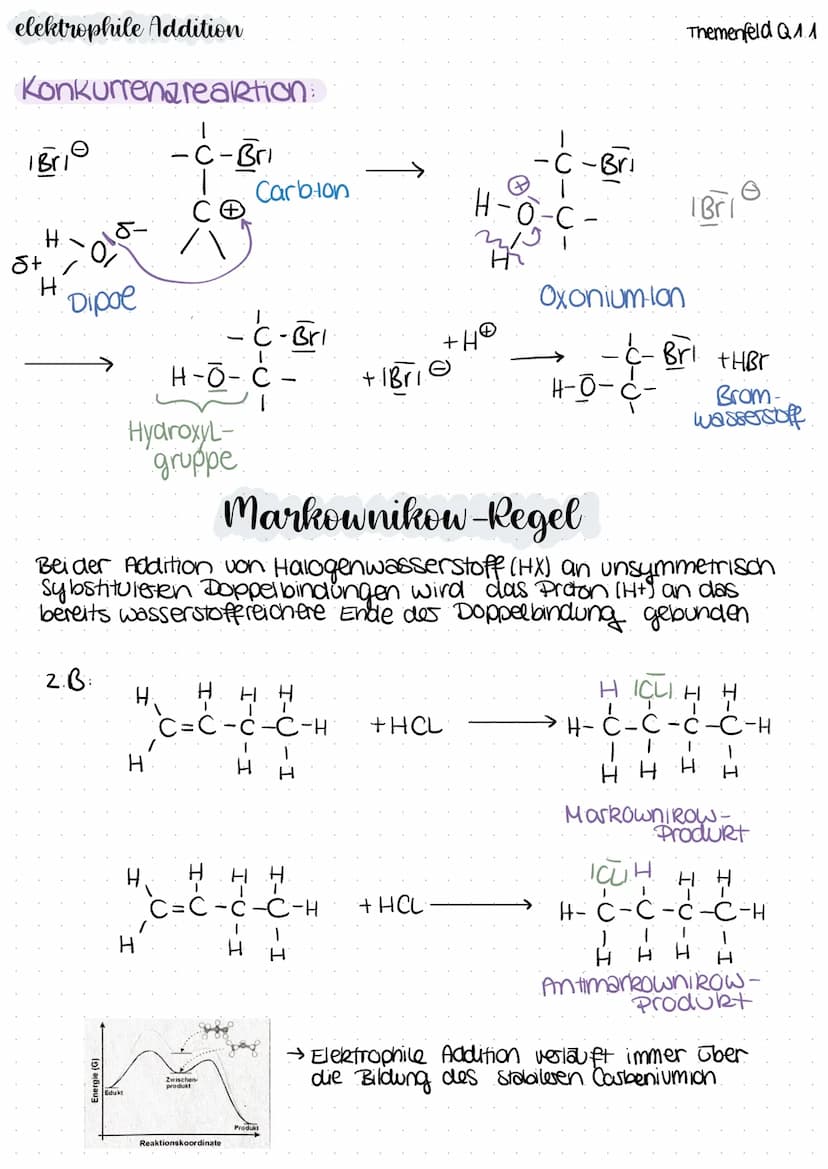 elektrophile Addition
Themenfeld Q11
Konkurrenzreaktion:
|Br|⊖
-C-Br|
C⊕
Carb-Ion
H
δ-
O
δ+
H
Dipole
-C-Br|
⊕
H-O-C-
H
|Br|⊖
Oxonium-Ion
-C-Br|
H-O-C-
+|Br|⊖
+H⊕
-C-Br|
H-O-C-
+HBr
Brom-
wasserstoff
Hydroxyl-
gruppe
Markownikow-Regel
Bei der Addition von Halogenwasserstoff (HX) an unsymmetrisch
Sybstituieren Doppelbindungen wird das Proton (H+) an das
bereits wasserstoffreichere Ende des Doppelbindung gebunden
z.B:
H H H H
C=C-C-C-H
H H H
+HCL
H |CL| H H
H-C-C-C-C-H
H H H H
Markownikow-
Produkt
H H H H
C=C-C-C-H
H H H
+HCL
|CL| H H H
H-C-C-C-C-H
H H H H
Antimarkownikow-
Produkt
Energie (G)
Edukt
Zwischen-
produkt
Produkt
Reaktionskoordinate
→ Elektrophile Addition verläuft immer über
die Bildung des stabileren Carbeniumion